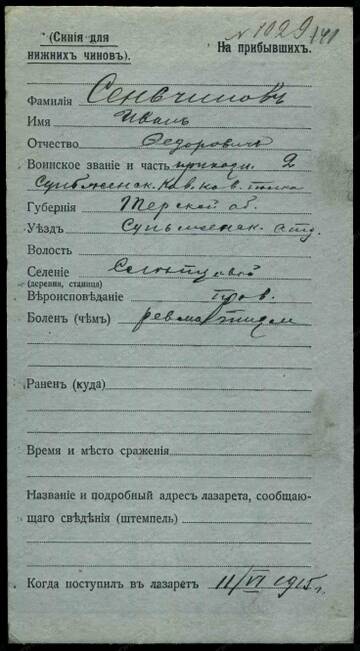 № 1029/141
(Синія для нижнихъ чиновъ).
На прибывшихъ.
Фамилія Сеньчиновъ
Имя Иванъ
Отчество Федоровичъ
Воинское званіе и часть приходи. 2
Сунженск. Кав. каз. полка
Губернія Терской об.
Уѣздъ Сунженск. отд.
Волость
Селеніе
(деревня, станица)
Вѣроисповѣданіе прав.
Боленъ (чѣмъ) ревматизм
Раненъ (куда)
Время и мѣсто сраженія
Названіе и подробный адресъ лазарета, сообщаю-
щаго свѣдѣнія (штемпель)
Когда поступил въ лазаретъ 11/VI 1915 г.